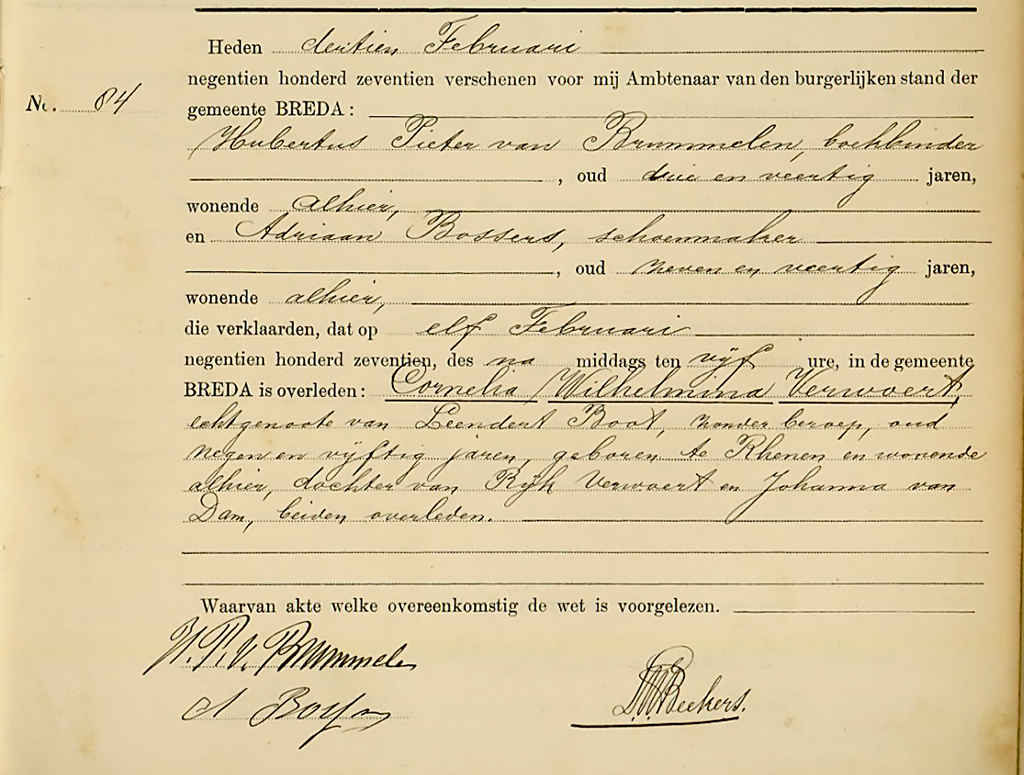 Heden dertien Februari
negentien honderd zeventien verschenen voor mij Ambtenaar van den burgerlijken stand der
No. 84
gemeente BREDA:
Hubertus Pieter van Brummelen, boekbinder
, oud drie en veertig jaren,
wonende alhier,
en Adriaan Bossers, schoenmaker
, oud zeven en veertig jaren,
wonende alhier,
die verklaarden, dat op elf Februari
negentien honderd zeventien, des na middags ten vijf ure, in de gemeente
BREDA is overleden: Cornelia Wilhelmina Verwoert,
echtgenoote van Leendert Boot, zonder beroep, oud
negen en vijftig jaren, geboren te Rhenen en wonende
alhier, dochter van Rijk Verwoert en Johanna van
Dam, beiden overleden.
Waarvan akte welke overeenkomstig de wet is voorgelezen.
H. P. v. Brummelen
A Bossers
Beckers.